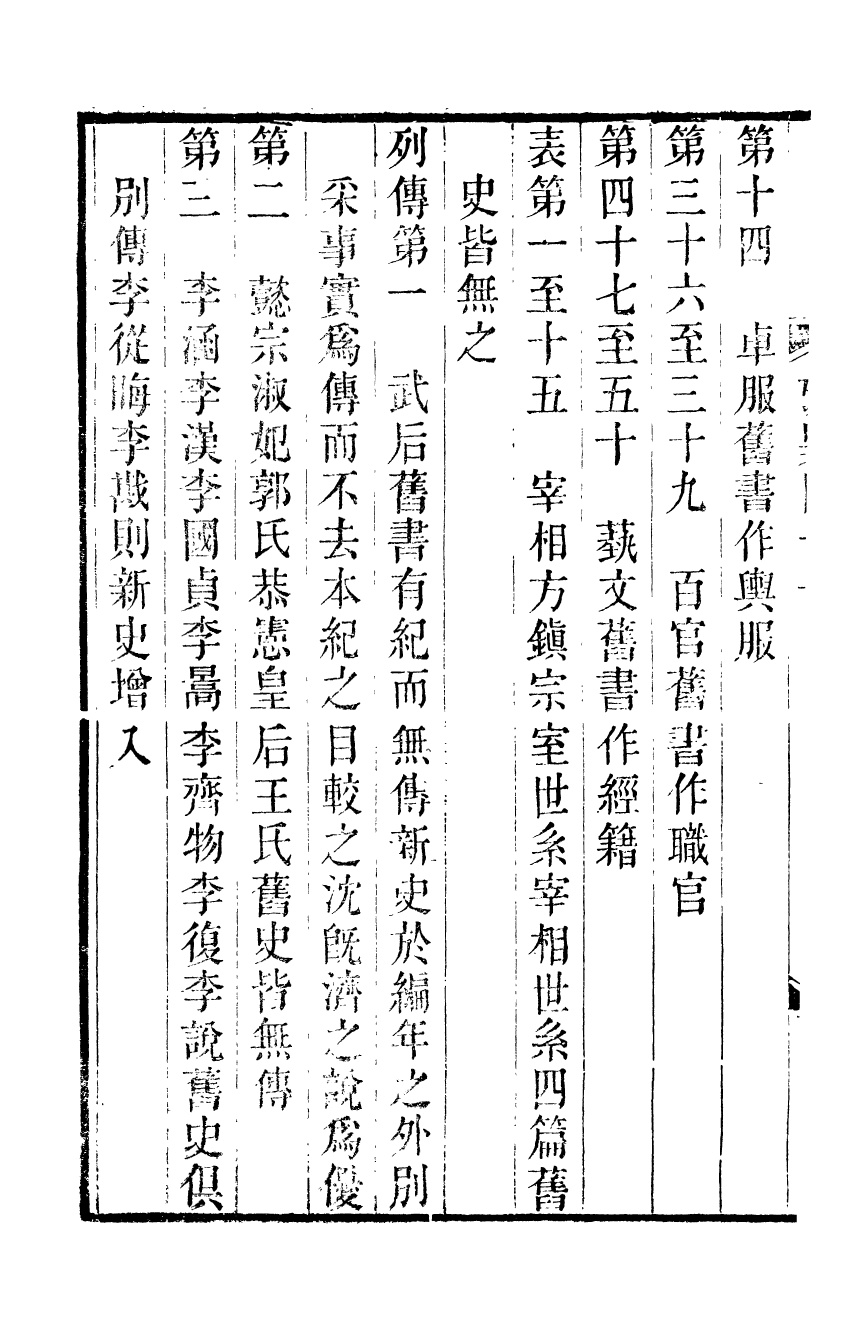 第十四　卓服舊書作輿服
第三十六至三十九　百官舊書作職官
第四十七至五十　蓺文舊書作經籍
表第一至十五　宰相方鎭宗室世系宰相世系四篇舊
史皆無之
列傳第一　武后舊書有紀而無傳新史於編年之外別
采事實爲傳而不去本紀之目較之沈旣濟之說爲優
第二　懿宗淑妃郭氏恭憲皇后王氏舊史皆無傳
第三　李涵李漢李國貞李暠李齊物李復李說舊史俱
別傳李從晦李戡則新史增入